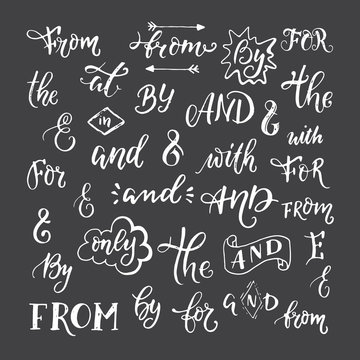 From from By FOR
the at BY AND & the
& in and & with with
For & and AND FOR
& only the AND From
By E
FROM by for AND from